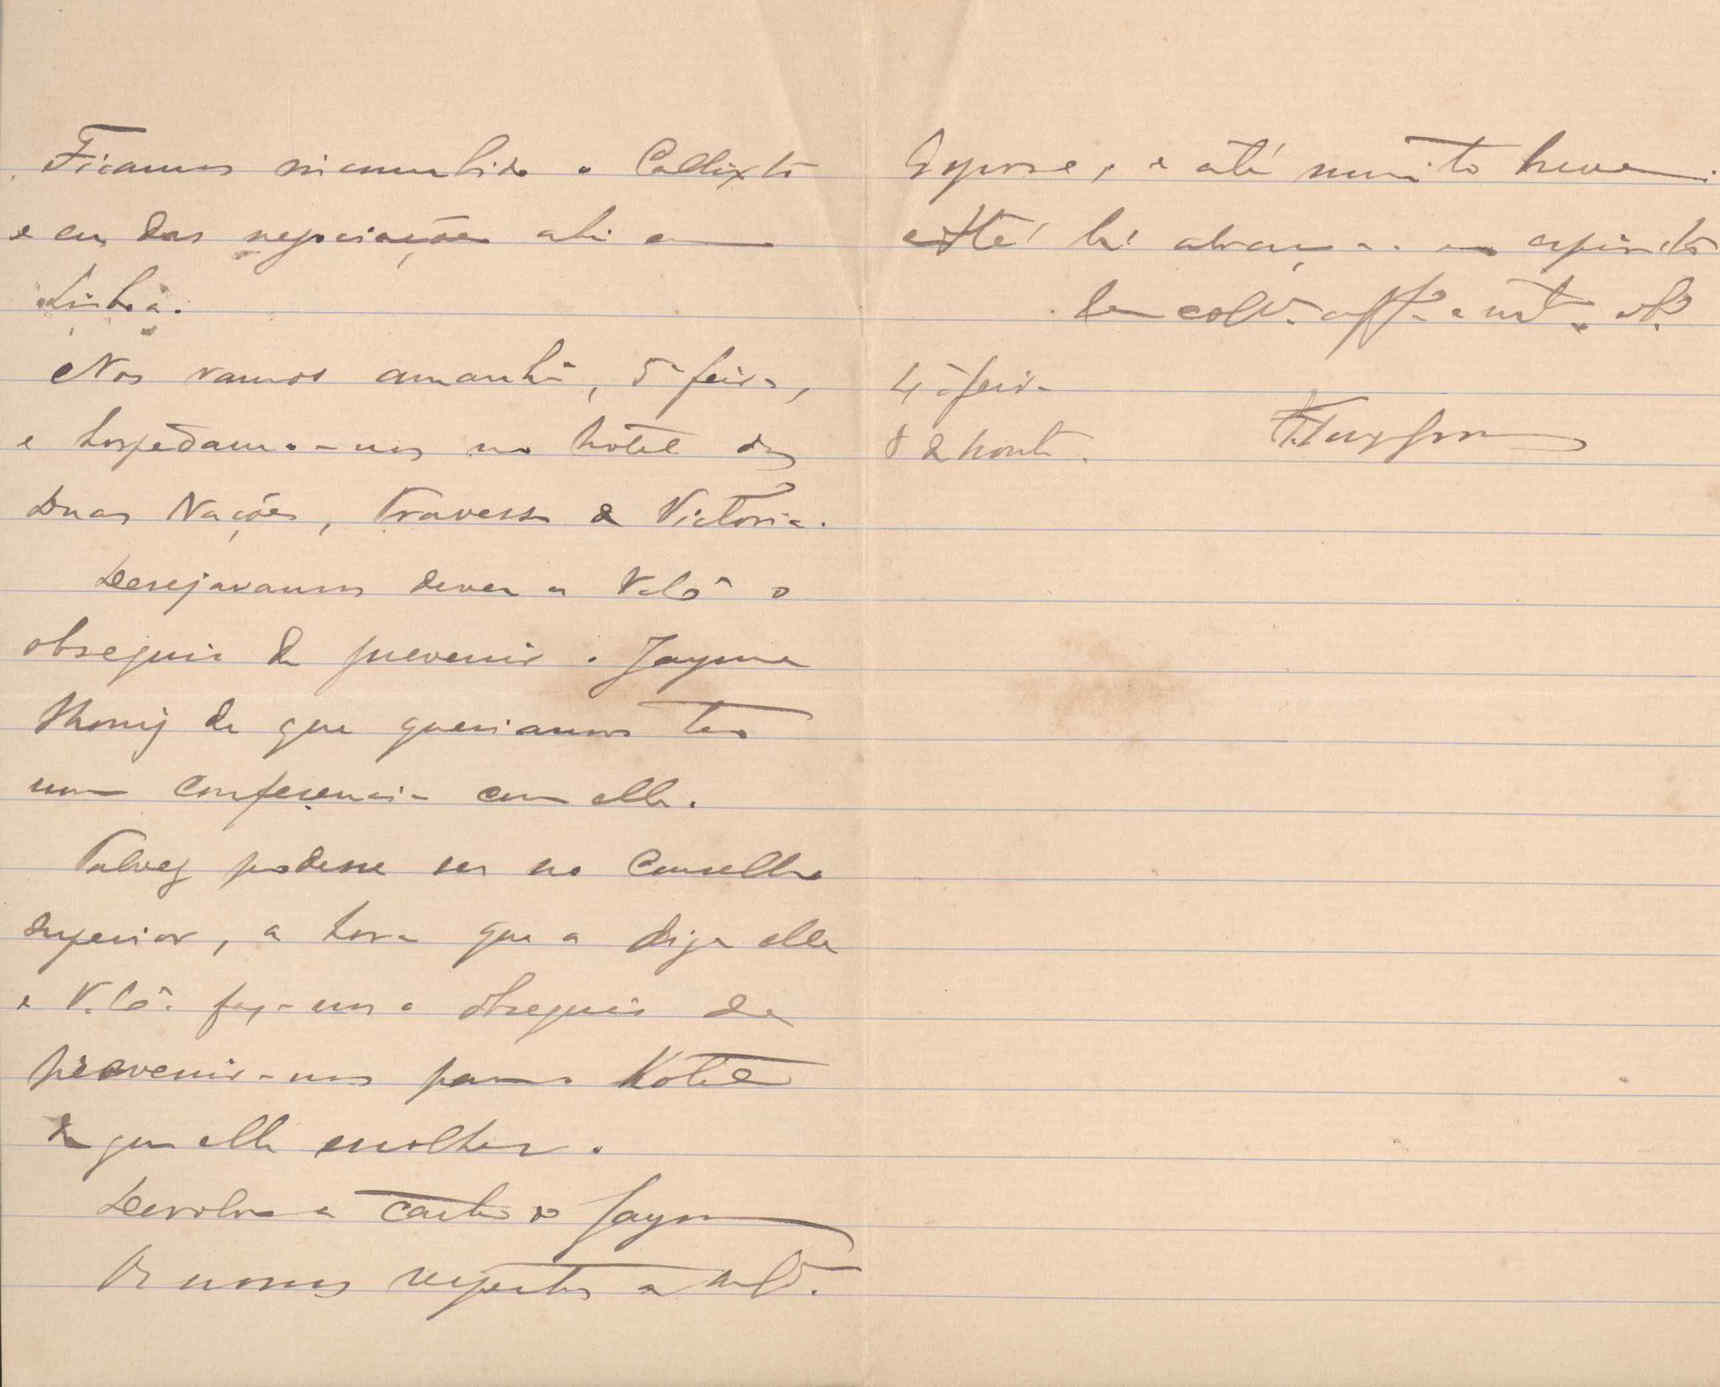 Ficamos incumbidos o Callixto
e eu das negociações ahi em
Lisboa.
Nos vamos amanhã, 5ª feira,
e hospedamo-nos no hotel das
Duas Nações, Travessa da Victoria.
Desejavamos dever a V. Cª o
obsequio de prevenir o Jayme
de que queriamos ter
uma conferencia com elle.
Talvez podesse ser no Conselho
Superior, a hora que a diga elle
e V. Cª. faz-nos o obsequio de
prevenir-nos para o Hotel
da que elle escolher.
Devolvo a carta do Jayme
Os nossos respeitos a
Esposa, e até muito breve.
Até lá abraça-o em espirito
4ª feira
8 da noute.